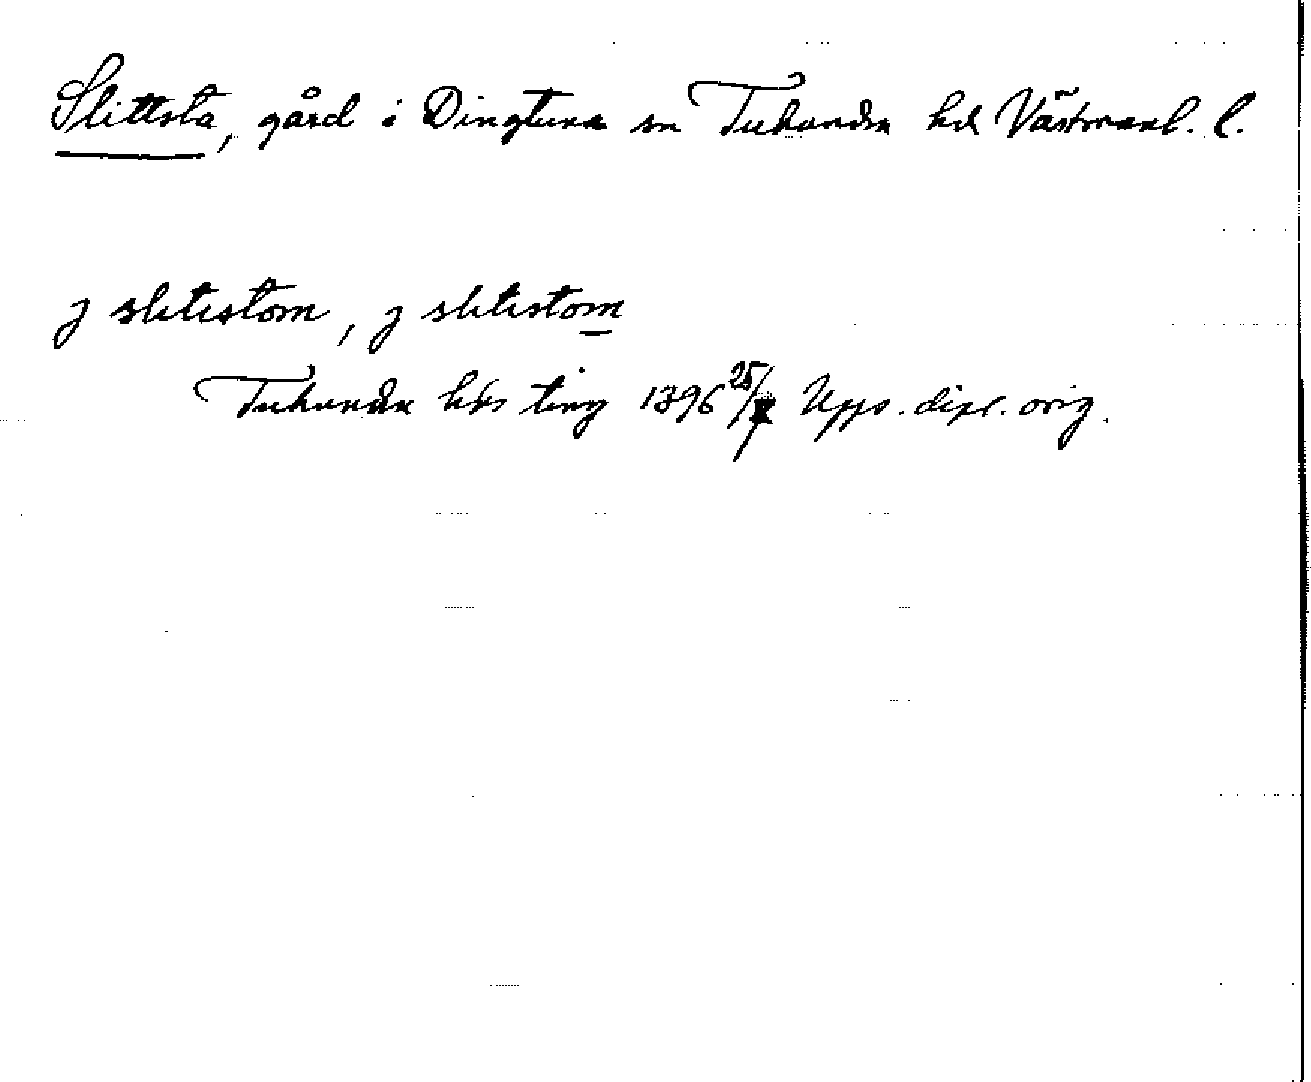 Slittsta, gård i Dingtuna sn Tuhundra hd Västmanl. l.
j slitistom, j slitistom
Tuhundra hds ting 1396 25/7 Upps. dipl. orig.